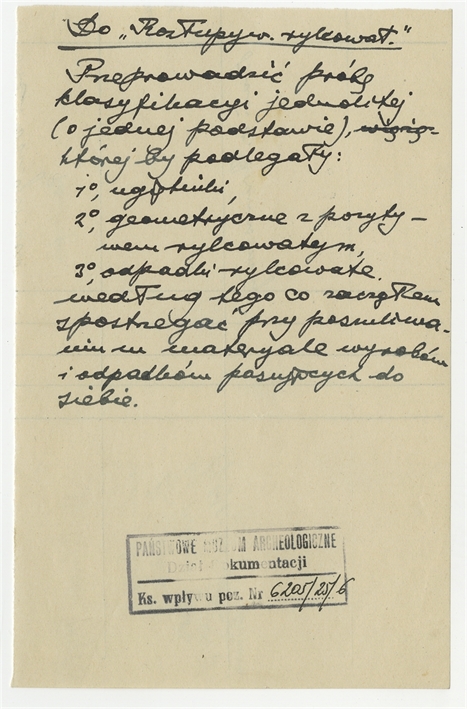 Do „Rozłupyw. rylcowat."
Przeprowadzić próbę
klasyfikacyi jednolitej
(o jednej podstawie),
której by podlegały:
1º, węgielniki,
2º, geometryczne z pozyty-
wem rylcowatym,
3º, odpadki rylcowate.
według tego co zacząłem
spostrzegać przy poszukiwa-
niu w materyale wyrobów
i odpadków pasujących do
siebie.
PAŃSTWOWE MUZEUM ARCHEOLOGICZNE
Dział Dokumentacji
Ks. wpływu poz. Nr 6205/25/6